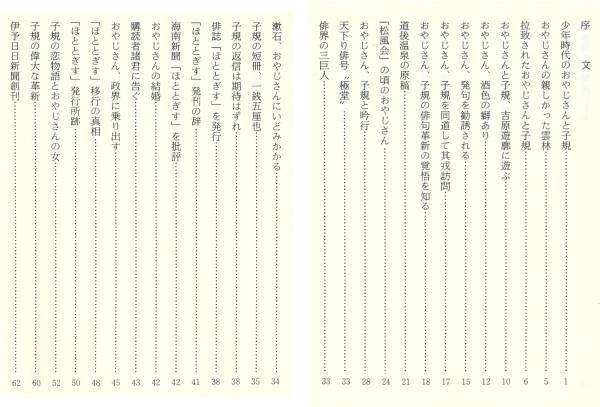 序文
少年時代のおやじさんと子規……1
おやじさんの親しかった雲林……5
拉致されたおやじさんと子規……6
おやじさんと子規、吉原遊廓に遊ぶ……10
おやじさん、酒色の癖あり……12
おやじさん、発句を勧誘される……15
おやじさん、子規を同道して其戎訪問……17
おやじさん、子規の俳句革新の覚悟を知る……18
道後温泉の原稿……21
「松風会」の頃のおやじさん……24
おやじさん、子規と吟行……28
天下り俳号〝極堂〟……33
俳界の三巨人……33
漱石、おやじさんにいどみかかる……34
子規の短冊、一銭五厘也……35
子規の返信は期待はずれ……38
俳誌「ほととぎす」を発行……38
「ほととぎす」発刊の辞……41
海南新聞「ほととぎす」を批評……42
おやじさんの結婚……42
購読者諸君に告ぐ……43
おやじさん、政界に乗り出す……45
「ほととぎす」移行の真相……48
「ほととぎす」発行所跡……50
子規の恋物語とおやじさんの女……52
子規の偉大な革新……60
伊予日日新聞創刊……62